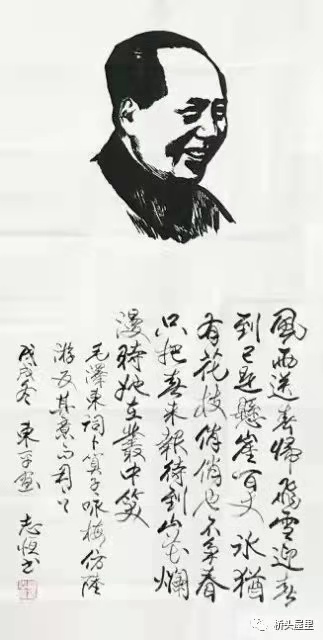 風雨送春歸飛雪迎春
到已是懸崖百丈冰猶
有花枝俏俏也不爭春
只把春來報待到山花爛
漫時她在叢中笑
毛澤東詞卜算子咏梅仿陸
游反其意而用之
戊戌冬 東平畫 志恒书
桥头屋里